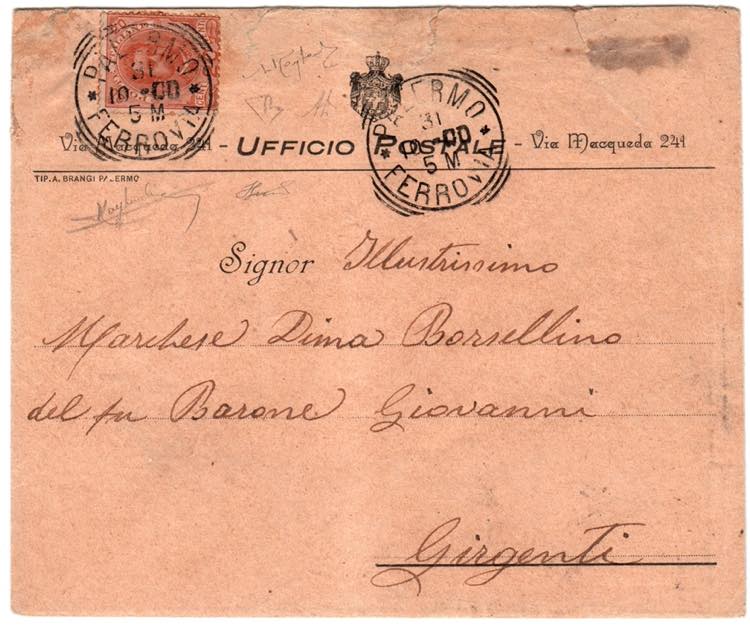 PALERMO
31
10 - 00
5 M
* FERROVIA *
PALERMO
31
10 - 00
5 M
* FERROVIA *
Via Macqueda 241 - UFFICIO POSTALE - Via Macqueda 241
TIP. A. BRANGI PALERMO
Signor Illustrissimo
Marchese Dima Borsellino
del fu Barone Giovanni
Girgenti